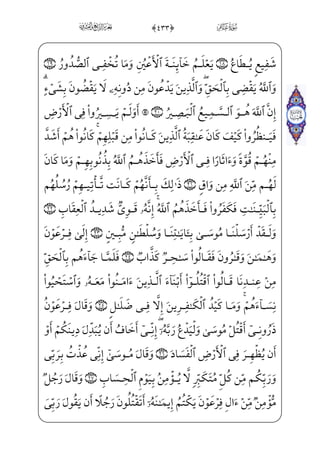 ﴿٤٣٣﴾
شَفِيعٍ يُطَاعُ ﴿١٨﴾ يَعْلَمُ خَآئِنَةَ ٱلْأَعْيُنِ وَمَا تُخْفِى ٱلصُّدُورُ ﴿١٩﴾
وَٱللَّهُ يَقْضِى بِٱلْحَقِّ ۖ وَٱلَّذِينَ يَدْعُونَ مِن دُونِهِۦ لَا يَقْضُونَ بِشَىْءٍ ۗ
إِنَّ ٱللَّهَ هُوَ ٱلسَّمِيعُ ٱلْبَصِيرُ ﴿٢٠﴾ ۞ أَوَلَمْ يَسِيرُوا۟ فِى ٱلْأَرْضِ
فَيَنظُرُوا۟ كَيْفَ كَانَ عَٰقِبَةُ ٱلَّذِينَ كَانُوا۟ مِن قَبْلِهِمْ ۚ كَانُوا۟ هُمْ أَشَدَّ
مِنْهُمْ قُوَّةً وَءَاثَارًا فِى ٱلْأَرْضِ فَأَخَذَهُمُ ٱللَّهُ بِذُنُوبِهِمْ وَمَا كَانَ
لَهُم مِّنَ ٱللَّهِ مِن وَاقٍ ﴿٢١﴾ ذَٰلِكَ بِأَنَّهُمْ كَانَت تَّأْتِيهِمْ رُسُلُهُم
بِٱلْبَيِّنَٰتِ فَكَفَرُوا۟ فَأَخَذَهُمُ ٱللَّهُ ۚ إِنَّهُۥ قَوِىٌّ شَدِيدُ ٱلْعِقَابِ ﴿٢٢﴾
وَلَقَدْ أَرْسَلْنَا مُوسَىٰ بِـَٔايَٰتِنَا وَسُلْطَٰنٍ مُّبِينٍ ﴿٢٣﴾ إِلَىٰ فِرْعَوْنَ
وَهَٰمَٰنَ وَقَٰرُونَ فَقَالُوا۟ سَٰحِرٌ كَذَّابٌ ﴿٢٤﴾ فَلَمَّا جَآءَهُم بِٱلْحَقِّ
مِنْ عِندِنَا قَالُوا۟ ٱقْتُلُوٓا۟ أَبْنَآءَ ٱلَّذِينَ ءَامَنُوا۟ مَعَهُۥ وَٱسْتَحْيُوا۟
نِسَآءَهُمْ ۚ وَمَا كَيْدُ ٱلْكَٰفِرِينَ إِلَّا فِى ضَلَٰلٍ ﴿٢٥﴾ وَقَالَ فِرْعَوْنُ
ذَرُونِىٓ أَقْتُلْ مُوسَىٰ وَلْيَدْعُ رَبَّهُۥٓ ۖ إِنِّىٓ أَخَافُ أَن يُبَدِّلَ دِينَكُمْ أَوْ
أَن يُظْهِرَ فِى ٱلْأَرْضِ ٱلْفَسَادَ ﴿٢٦﴾ وَقَالَ مُوسَىٰٓ إِنِّى عُذْتُ بِرَبِّى
وَرَبِّكُم مِّن كُلِّ مُتَكَبِّرٍ لَّا يُؤْمِنُ بِيَوْمِ ٱلْحِسَابِ ﴿٢٧﴾ وَقَالَ رَجُلٌ
مُّؤْمِنٌ مِّنْ ءَالِ فِرْعَوْنَ يَكْتُمُ إِيمَٰنَهُۥٓ أَتَقْتُلُونَ رَجُلًا أَن يَقُولَ رَبِّىَ